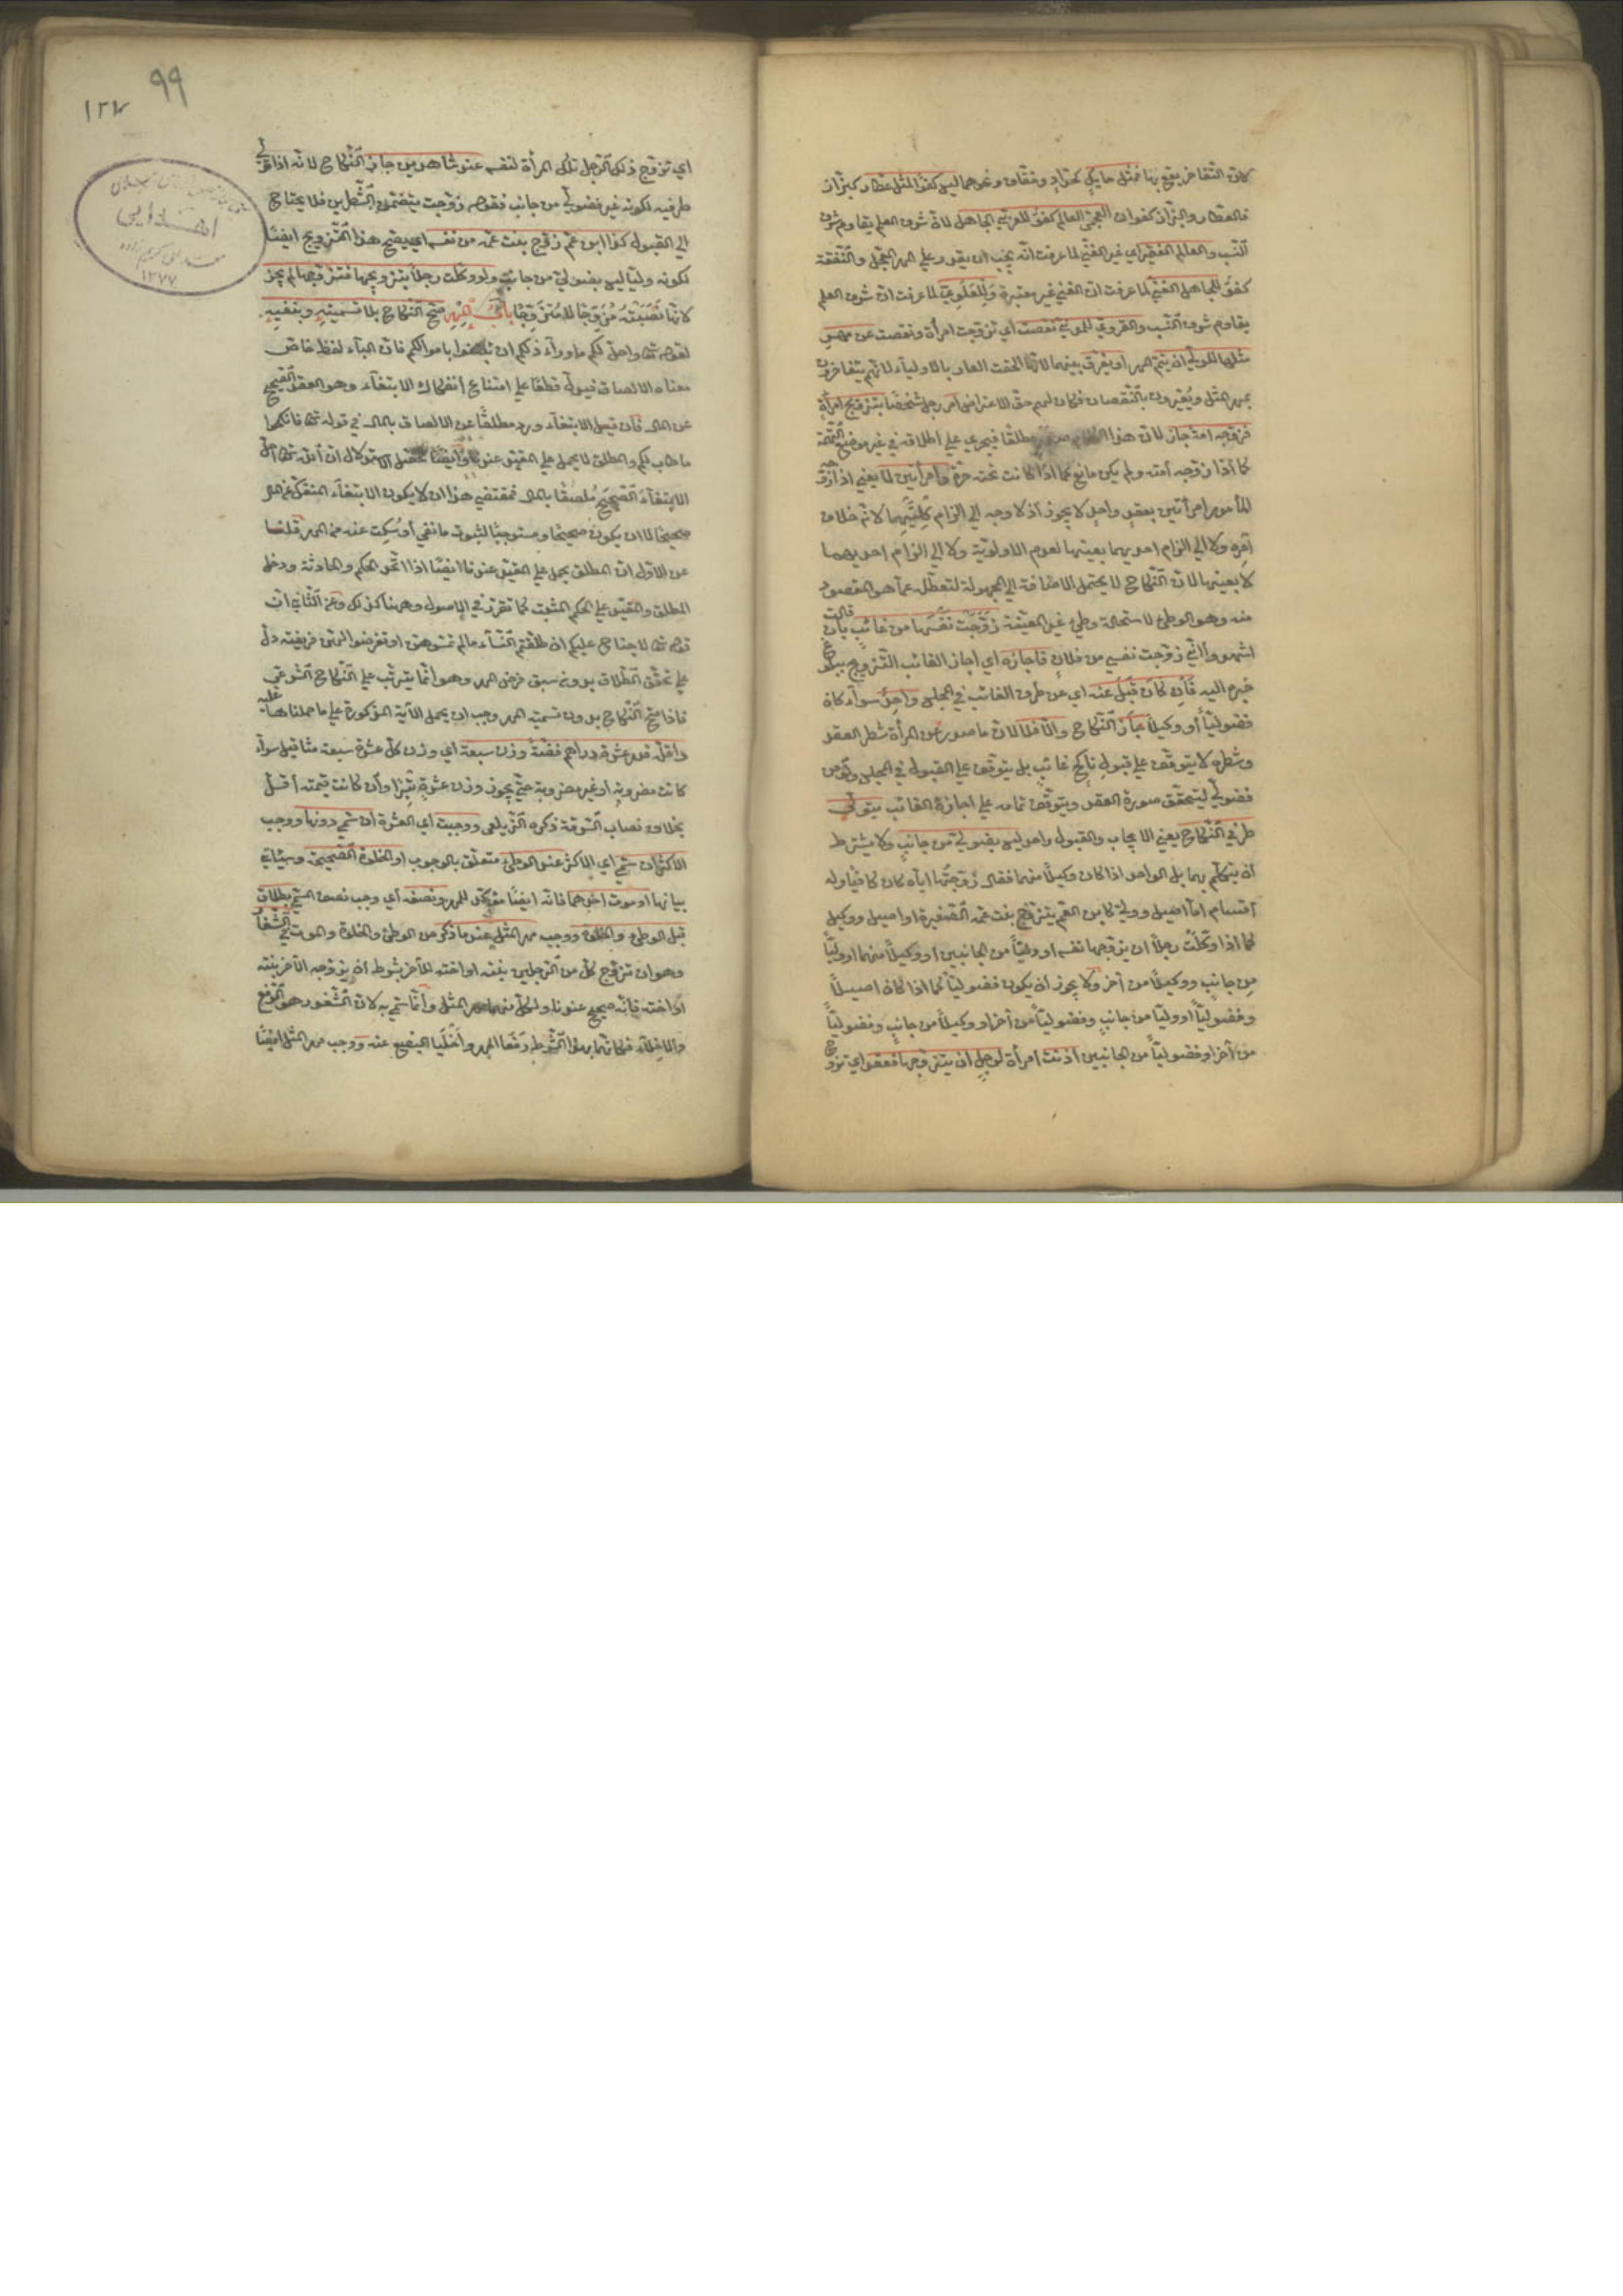 لانّ التّفاخر يقع بها فمثل حايك كحدّاد وخفّاف ونحوهما ليس كفؤا لمثل عطّار كبزّاز
فالعطّار والبزّاز كفوان العجميّ العالم كفؤ للعربيّ الجاهل لانّ شرف العلم يقاوم شرف
النّسب والعالم الفقير اي غير الغنيّ لما عرفت انّه يجب ان يقدر علي المهر المعجّل والنّفقة
كفؤ للجاهل الغنيّ لما عرفت انّ الغني غير معتبرة وللعلويّ لما عرفت انّ شرف العلم
يقاوم شرف النّسب والقرويّ للمدنيّ نقصت اي تزوّجت امرأة ونقصت عن مهر
مثلها للوليّ ان يتمّ المهر او يفرق بينهما لانّها الحقت العار بالاولياء لانّهم يتفاخرون
بمهر المثل ويعيّرون بالنّقصان فكان لهم حقّ الاعتراض امر رجل شخصا بتزويج امرأة
فزوّجه امة جاز لانّ هذا الكلام صدر مطلقا فيجري علي اطلاقه في غير موضع التّهمة
كما اذا زوّجه امته ولم يكن مانع كما اذا كانت تحته حرّة وامرأتين لا يعني اذا زوّجه
المأمور امرأتين بعقد واحد لا يجوز اذ لا وجه الي الزام كلتيهما لانّه خلاف
امره ولا الي الزام احديهما بعينها لعدم الاولويّة ولا الي الزام احديهما
لا بعينها لانّ النّكاح لا يحتمل الاضافة الي المجهولة لتعطّل عمّا هو المقصود
منه وهو الوطئ لاستحالة وطئ غير المعيّنة زوّجت نفسها من غائب بان قالت
اشهدوا انّي زوّجت نفسي من فلان فاجازه اي اجاز الغائب التّزويج ببلوغ
خبره اليه فان كان قبل عنه اي من طرف الغائب في المجلس واحد سواء كان
فضوليّا أو وكيلا جاز النّكاح والّا فلا لانّ ما صدر من المرأة شطر العقد
وشطره لا يتوقّف علي قبول ناكح غائب بل يتوقّف علي القبول في المجلس ولو من
فضوليّ ليتحقّق صورة العقد ويتوقّف تمامه علي اجازة الغائب يتولّي
طرفي النّكاح يعني الايجاب والقبول واحد ليس بفضوليّ من جانب ولا يشترط
أن يتكلّم بهما بل الواحد اذا كان وكيلا منهما فقال زوّجتها ايّاه كان كافيا وله
اقسام امّا اصيل ووليّ كابن العمّ يتزوّج بنت عمّه الصّغيرة او اصيل ووكيل
كما اذا وكّلت رجلا ان يزوّجها نفسه او وليّا من الجانبين أو وكيلا منهما او وليّا
من جانب ووكيلا من آخر ولا يجوز ان يكون فضوليّا كما اذا كان اصيلا
وفضوليّا أو وليّا من جانب وفضوليّا من آخر او وكيلا من جانب وفضوليّا
من آخر او فضوليّا من الجانبين اذنت امرأة لرجل ان يتزوّجها فعقد اي تزوّج
٩٩
اي تزوّج ذلك الرّجل تلك المرأة لنفسه عند شاهدين جاز النّكاح لانّه اذا تولّي
طرفيه لكونه غير فضوليّ من جانب فقوله زوّجت يتضمّن الشّطرين فلا يحتاج
الي القبول كذا ابن عمّ زوّج بنت عمّه من نفسه اي يصحّ هذا التّزويج ايضا
لكونه وليّا ليس بفضوليّ من جانب ولو وكّلت رجلا بتزويجها فتزوّجها لم يجز
لانّها نصبته مزوّجا لا متزوّجا باب المهر صحّ النّكاح بلا تسميته وبنفيه
لقوله تعا واحلّ لكم ما وراء ذلكم ان تبتغوا باموالكم فانّ الباء لفظ خاصّ
معناه الالصاق فيدلّ قطعا علي امتناع انفكاك الابتغاء وهو العقد الصّحيح
عن المال فان قيل الابتغاء ورد مطلقا عن الالصاق بالمال في قوله تعا فانكحوا
ما طاب لكم والمطلق لا يحمل علي المقيّد عندنا وايضا الاستدلال ان اللّه تعا احلّ
الابتغاء الصّحيح ملصقا بالمال فمقتضي هذا ان لا يكون الابتغاء المنفكّ عن المال
صحيحا لا ان يكون صحيحا ومستوجبا لثبوت ما نفي أو سكت عنه من المهر قلنا
عن الاوّل انّ المطلق يحمل علي المقيّد عندنا ايضا اذا اتّحد الحكم والحادثة ودخل
المطلق والمقيّد علي الحكم المثبت كما تقرّر في الاصول وههنا كذلك وعن الثّاني انّ
قوله تعا لا جناح عليكم ان طلّقتم النّساء ما لم تمسّوهنّ او تفرضوا لهنّ فريضة دلّ
علي تحقّق الطّلاق بدون سبق فرض المهر وهو انّما يترتّب علي النّكاح الشّرعيّ
فاذا صحّ النّكاح بدون تسمية المهر وجب ان يحمل الآية المذكورة علي ما حملناها عليه
واقلّه قدر عشرة دراهم فضّة وزن سبعة اي وزن كلّ عشرة سبعة مثاقيل سواء
كانت مضروبة او غير مضروبة حتّي يجوز وزن عشرة تبرا وان كانت قيمته اقلّ
بخلاف نصاب السّرقة ذكره الزّيلعي ووجبت اي العشرة ان سمّي دونها ووجب
الاكثر ان سمّي اي الاكثر عند الوطئ متعلّق بالوجوب او الخلوة الصّحيحة وسيأتي
بيانها او موت احدهما فانّه ايضا مؤكّد للمهر ونصفه اي وجب نصف المسمّي بطلاق
قبل الوطئ والخلوة ووجب مهر المثل عند ما ذكر من الوطئ والخلوة والموت في الشّغار
وهو ان تزوّج كلّ من الرّجلين بنته او اخته للآخر بشرط أن يزوّجه الآخر بنته
او اخته فانّه صحيح عندنا ولكلّ منهما مهر المثل وانّما سمّي به لانّ الشّغور هو الرّفع
والاخلاء فكانّهما بهذا الشّرط رفعا المهر واخليا البضع عنه ووجب مهر المثل ايضا
اهدایی
۱۳۷۷